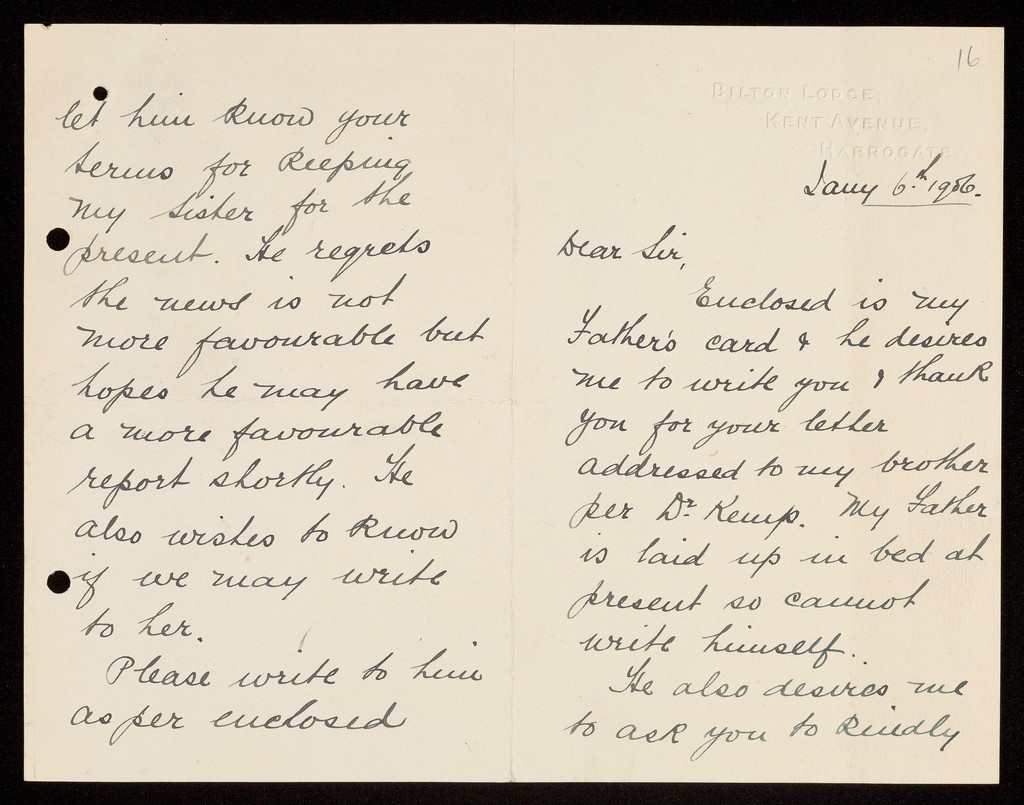 16
BILTON LODGE,
KENT AVENUE,
HARROGATE
Jany 6.th 1906.
Dear Sir,
Enclosed is my
Father's card & he desires
me to write you & thank
you for your letter
addressed to my brother
per Dr. Kemp. My Father
is laid up in bed at
present so cannot
write himself.
He also desires me
to ask you to kindly
let him know your
terms for keeping
my sister for the
present. He regrets
the news is not
more favourable but
hopes he may have
a more favourable
report shortly. He
also wishes to know
if we may write
to her.
Please write to him
as per enclosed